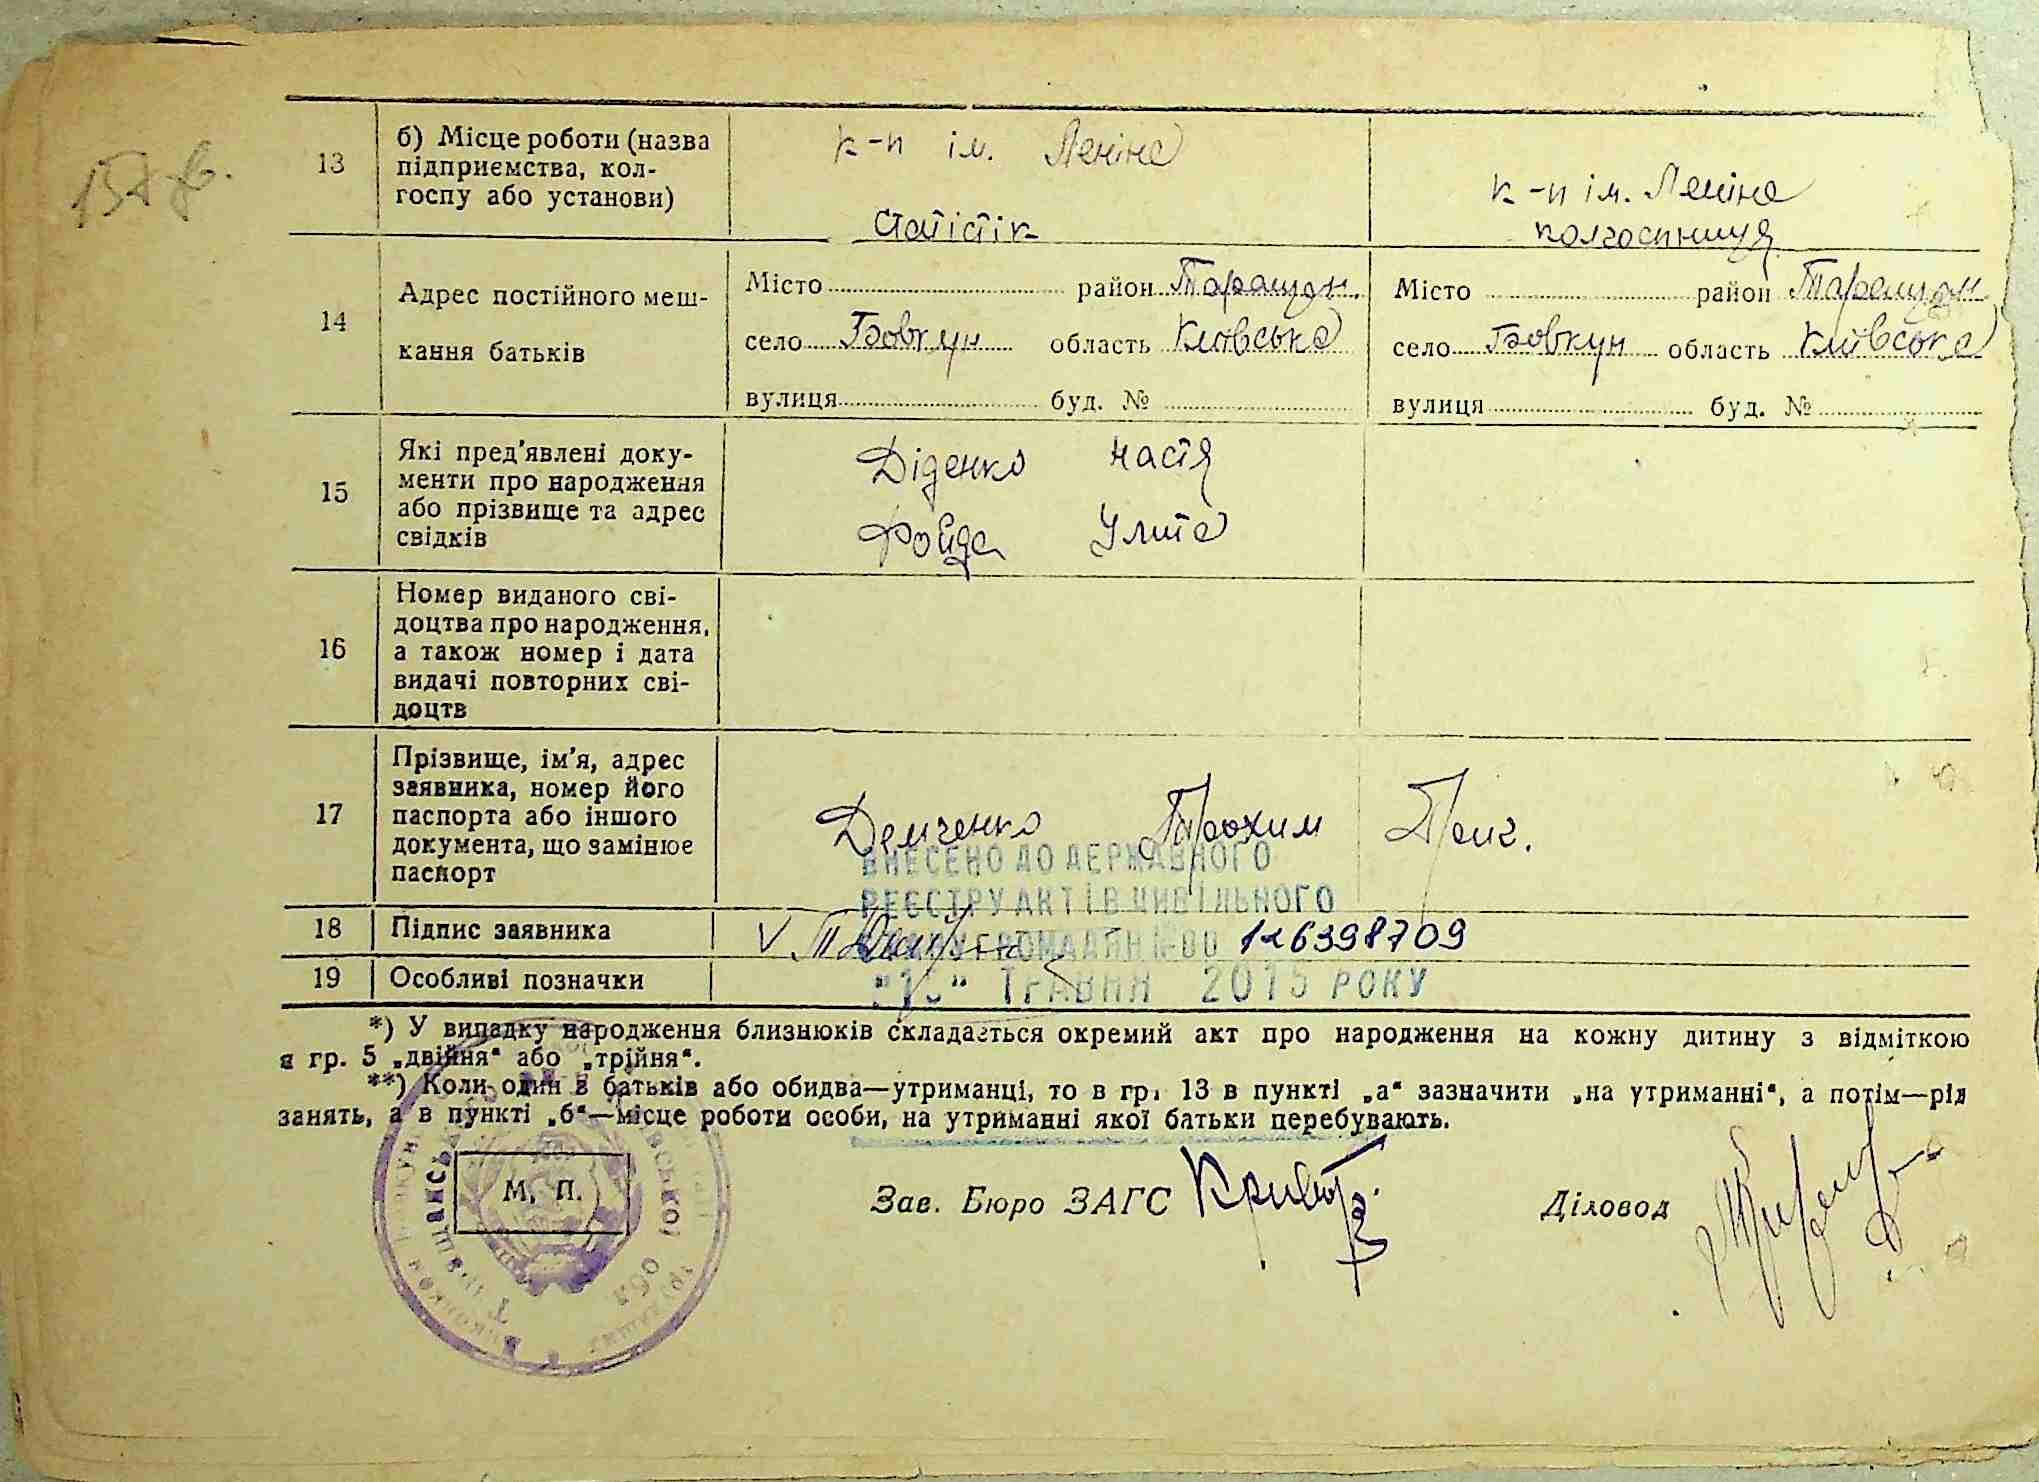 13
б) Місце роботи (назва
підприємства, кол-
госпу або установи)
к-п ім. Леніна
Статістік
к-п ім. Леніна
колгоспниця
14
Адрес постійного меш-
кання батьків
Місто район Таращан.
село Бовкун область Київська
вулиця буд. №
Місто район Таращан.
село Бовкун область Київська
вулиця буд. №
15
Які пред'явлені доку-
менти про народження
або прізвище та адрес
свідків
Діденко Настя
Фойда Улита
16
Номер виданого сві-
доцтва про народження,
а також номер і дата
видачі повторних сві-
доцтв
17
Прізвище, ім'я, адрес
заявника, номер його
паспорта або іншого
документа, що замінює
паспорт
Демченко Трохим
ВНЕСЕНО ДО ДЕРЖАВНОГО
РЕЄСТРУ АКТІВ ЦИВІЛЬНОГО
18
Підпис заявника
ГРОМАДЯН №00 126398709
19
Особливі позначки
ТРАВНЯ 2015 РОКУ
*) У випадку народження близнюків складається окремий акт про народження на кожну дитину з відміткою
в гр. 5 „двійня“ або „трійня“.
**) Коли один з батьків або обидва—утриманці, то в гр. 13 в пункті „а“ зазначити „на утриманні“, а потім—рід
занять, а в пункті „б“—місце роботи особи, на утриманні якої батьки перебувають.
М. П.
Зав. Бюро ЗАГС
Діловод